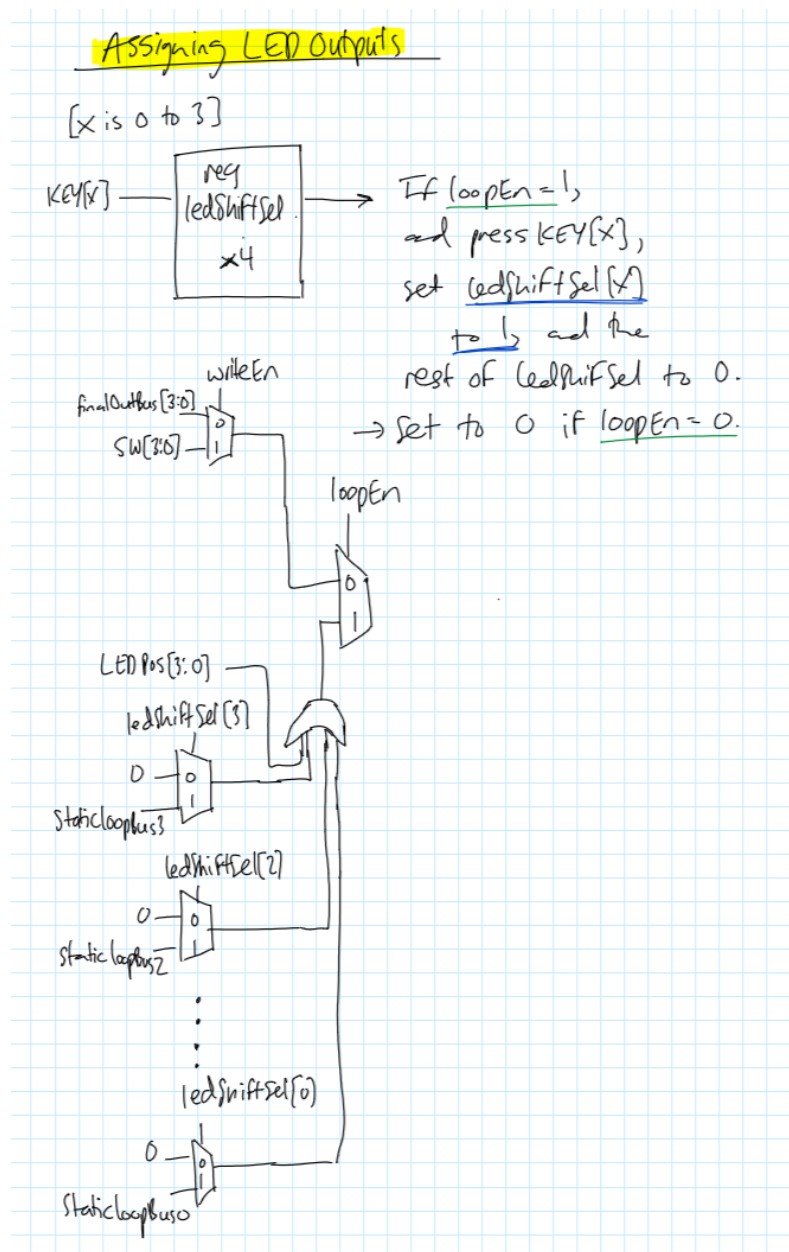 Assigning LED Outputs
[x is 0 to 3]
KEY[x]
reg
ledShiftSel
x4
If loopEn = 1,
and press KEY[x],
set ledShiftSel[x]
to 1, and the
rest of ledShifSel to 0.
→ Set to 0 if loopEn = 0.
writeEn
finalOutbus[3:0]
0
SW[3:0]
1
loopEn
0
1
LEDPos[3:0]
ledShiftSel[3]
0
0
1
Staticloopbus3
ledShiftSel[2]
0
0
1
Staticloopbus2
ledShiftSel[0]
0
0
1
Staticloopbus0